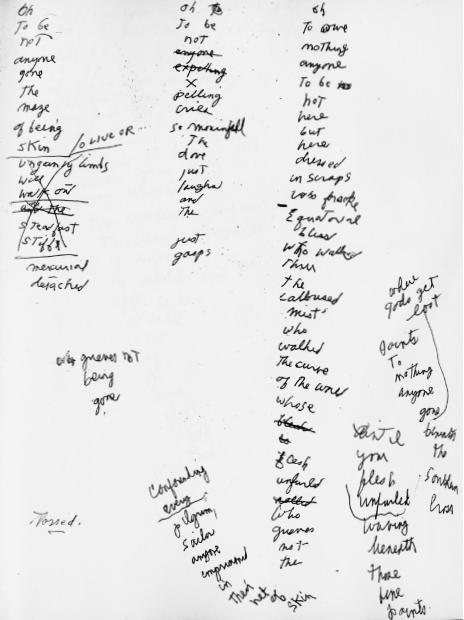 oh
To be
not
anyone
gone
the
maze
of being
skin
to live or
ungainly limbs
will
walk on
steadfast
stiff
mercurial
detached
grieves not
being
gone
Tossed.
oh
To be
not
anyone
expelling
x
pelling
cries
so mournfull
The
dove
Just
laughs
and
The
just
gasps
oh
To owe
nothing
anyone
To be
not
here
but
here
dressed
in scraps
who
Equatorial
bless
who walked
Thru
the
calloused
mist
who
walked
The curve
of the world
whose
to
flesh
unfurled
who
grieves
not
the
where
gods get
lost
points
To
nothing
anyone
gone
beneath
the
Southern
Cross
until
you
flesh
unfurled
waving
beneath
those
fine
points.
Confounding
every
pilgrim,
sailor
anyone
imprisoned
in
their
skin